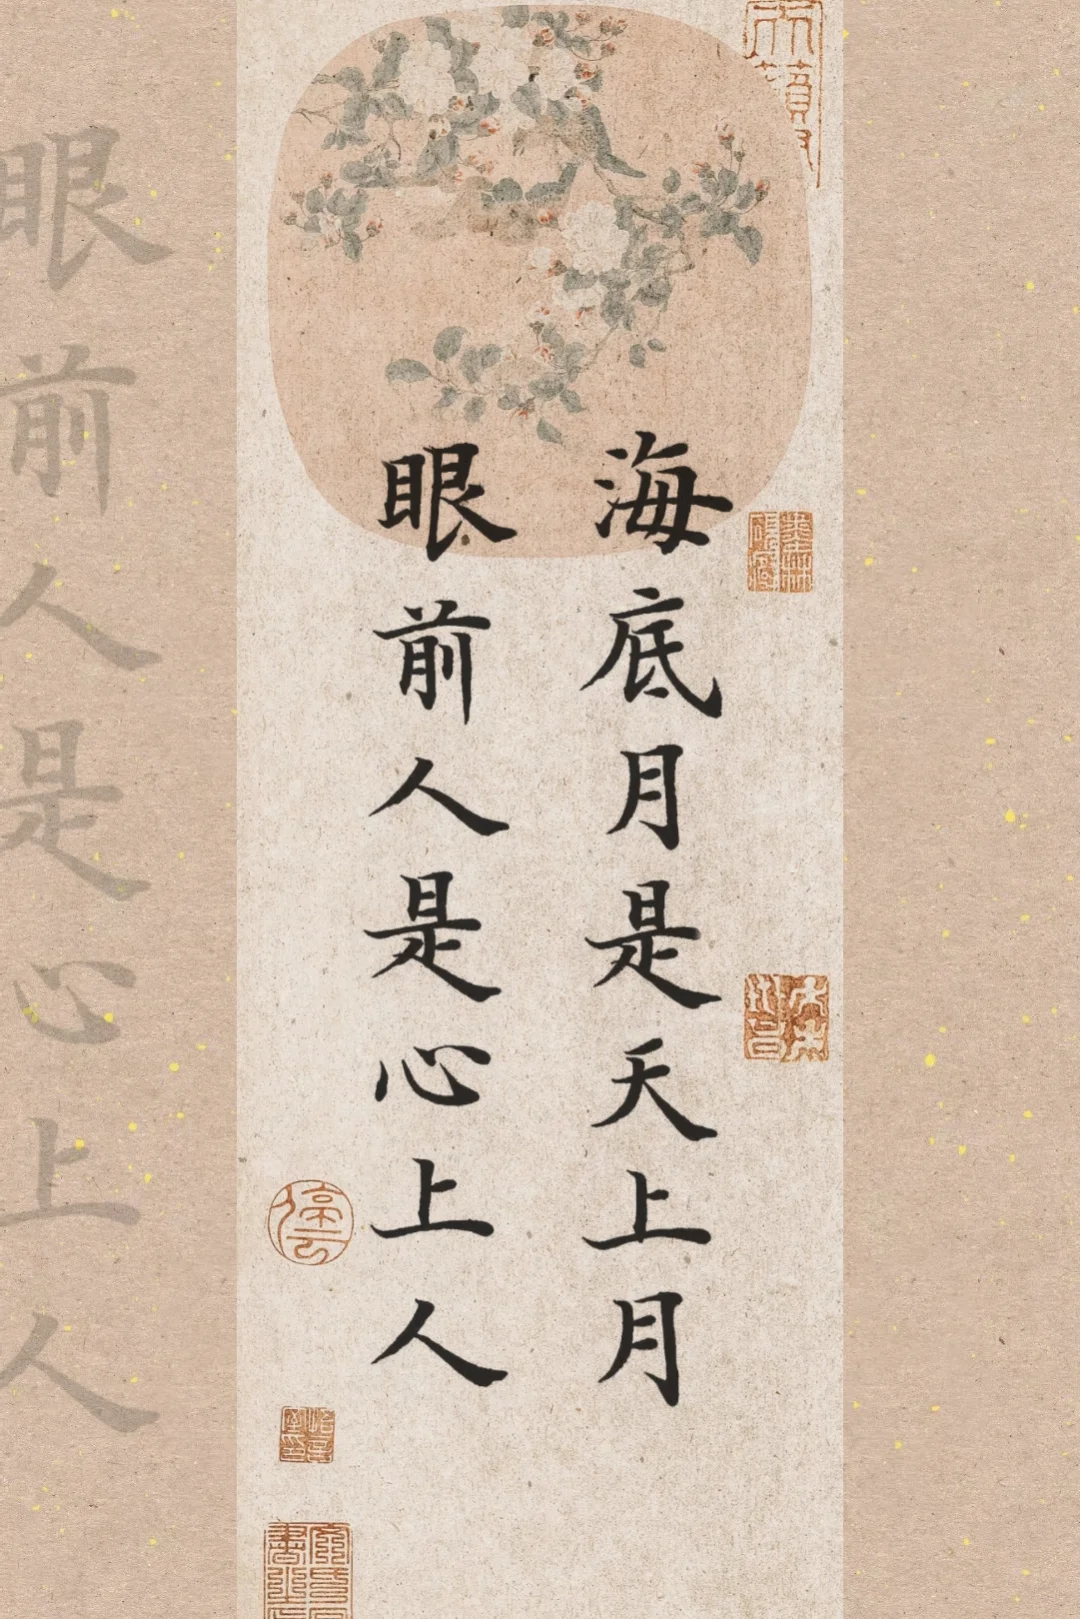 海底月是天上月
眼前人是心上人
眼前人是心上人